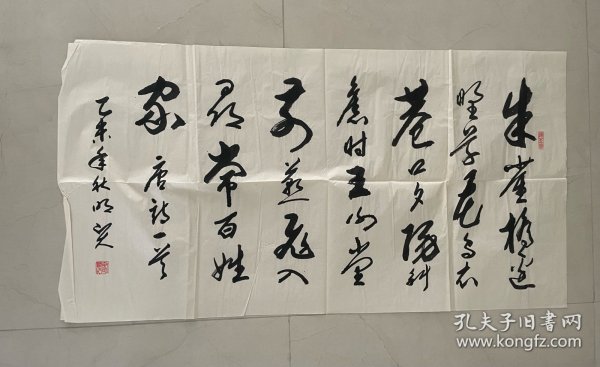 朱雀橋邊
野草花烏衣
巷口夕陽斜
舊時王謝堂
前燕飛入
尋常百姓
家 唐詩一首
乙未年秋明
孔夫子旧书网
www.kongfz.com